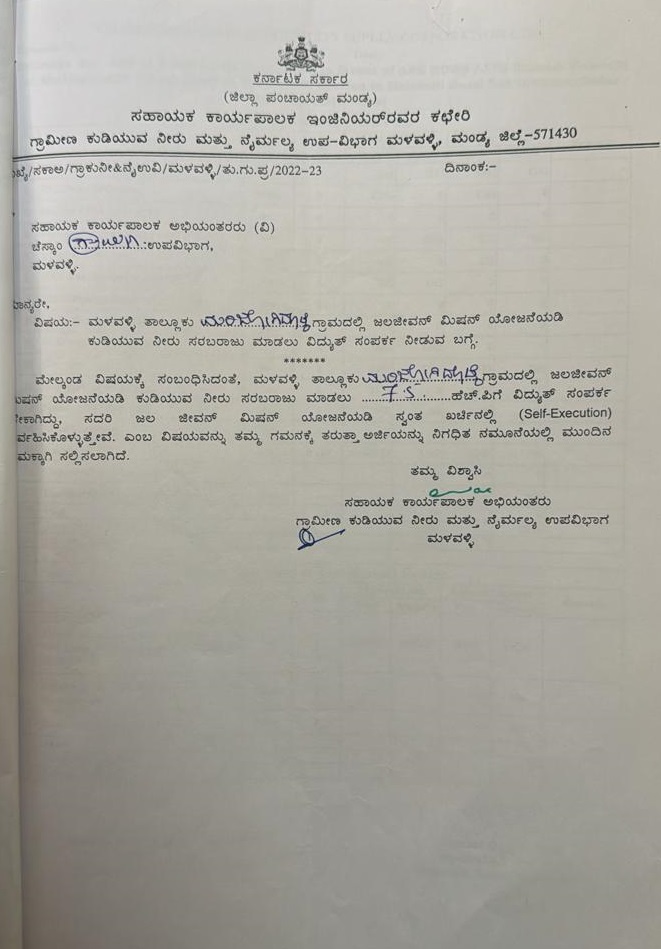 ಕರ್ನಾಟಕ ಸರ್ಕಾರ
(ಜಿಲ್ಲಾ ಪಂಚಾಯತ್ ಮಂಡ್ಯ)
ಸಹಾಯಕ ಕಾರ್ಯಪಾಲಕ ಇಂಜಿನಿಯರ್‌ರವರ ಕಛೇರಿ
ಗ್ರಾಮೀಣ ಕುಡಿಯುವ ನೀರು ಮತ್ತು ನೈರ್ಮಲ್ಯ ಉಪ-ವಿಭಾಗ ಮಳವಳ್ಳಿ, ಮಂಡ್ಯ ಜಿಲ್ಲೆ-571430
/ಸಕಾಅ/ಗ್ರಾಕುನೀ&ನೈಉವಿ/ಮಳವಳ್ಳಿ/ತು.ಗು.ಪ್ರ/2022-23 ದಿನಾಂಕ:-
ಸಹಾಯಕ ಕಾರ್ಯಪಾಲಕ ಅಭಿಯಂತರರು (ವಿ)
ಚೆಸ್ಕಾಂ ಗ್ರಾಮೀಣ :ಉಪವಿಭಾಗ,
ಮಳವಳ್ಳಿ.
ಮಾನ್ಯರೇ,
ವಿಷಯ:- ಮಳವಳ್ಳಿ ತಾಲ್ಲೂಕು ಗ್ರಾಮದಲ್ಲಿ ಜಲಜೀವನ್ ಮಿಷನ್ ಯೋಜನೆಯಡಿ
ಕುಡಿಯುವ ನೀರು ಸರಬರಾಜು ಮಾಡಲು ವಿದ್ಯುತ್ ಸಂಪರ್ಕ ನೀಡುವ ಬಗ್ಗೆ.
*******
ಮೇಲ್ಕಂಡ ವಿಷಯಕ್ಕೆ ಸಂಬಂಧಿಸಿದಂತೆ, ಮಳವಳ್ಳಿ ತಾಲ್ಲೂಕು ಗ್ರಾಮದಲ್ಲಿ ಜಲಜೀವನ್
ಮಿಷನ್ ಯೋಜನೆಯಡಿ ಕುಡಿಯುವ ನೀರು ಸರಬರಾಜು ಮಾಡಲು ...7.5......ಹೆಚ್.ಪಿಗೆ ವಿದ್ಯುತ್ ಸಂಪರ್ಕ
ಬೇಕಾಗಿದ್ದು, ಸದರಿ ಜಲ ಜೀವನ್ ಮಿಷನ್ ಯೋಜನೆಯಡಿ ಸ್ವಂತ ಖರ್ಚಿನಲ್ಲಿ (Self-Execution)
ರ್ವಹಿಸಿಕೊಳ್ಳುತ್ತೇವೆ. ಎಂಬ ವಿಷಯವನ್ನು ತಮ್ಮ ಗಮನಕ್ಕೆ ತರುತ್ತಾ ಅರ್ಜಿಯನ್ನು ನಿಗಧಿತ ನಮೂನೆಯಲ್ಲಿ ಮುಂದಿನ
ಮಕ್ಕಾಗಿ ಸಲ್ಲಿಸಲಾಗಿದೆ.
ತಮ್ಮ ವಿಶ್ವಾಸಿ
ಸಹಾಯಕ ಕಾರ್ಯಪಾಲಕ ಅಭಿಯಂತರು
ಗ್ರಾಮೀಣ ಕುಡಿಯುವ ನೀರು ಮತ್ತು ನೈರ್ಮಲ್ಯ ಉಪವಿಭಾಗ
ಮಳವಳ್ಳಿ